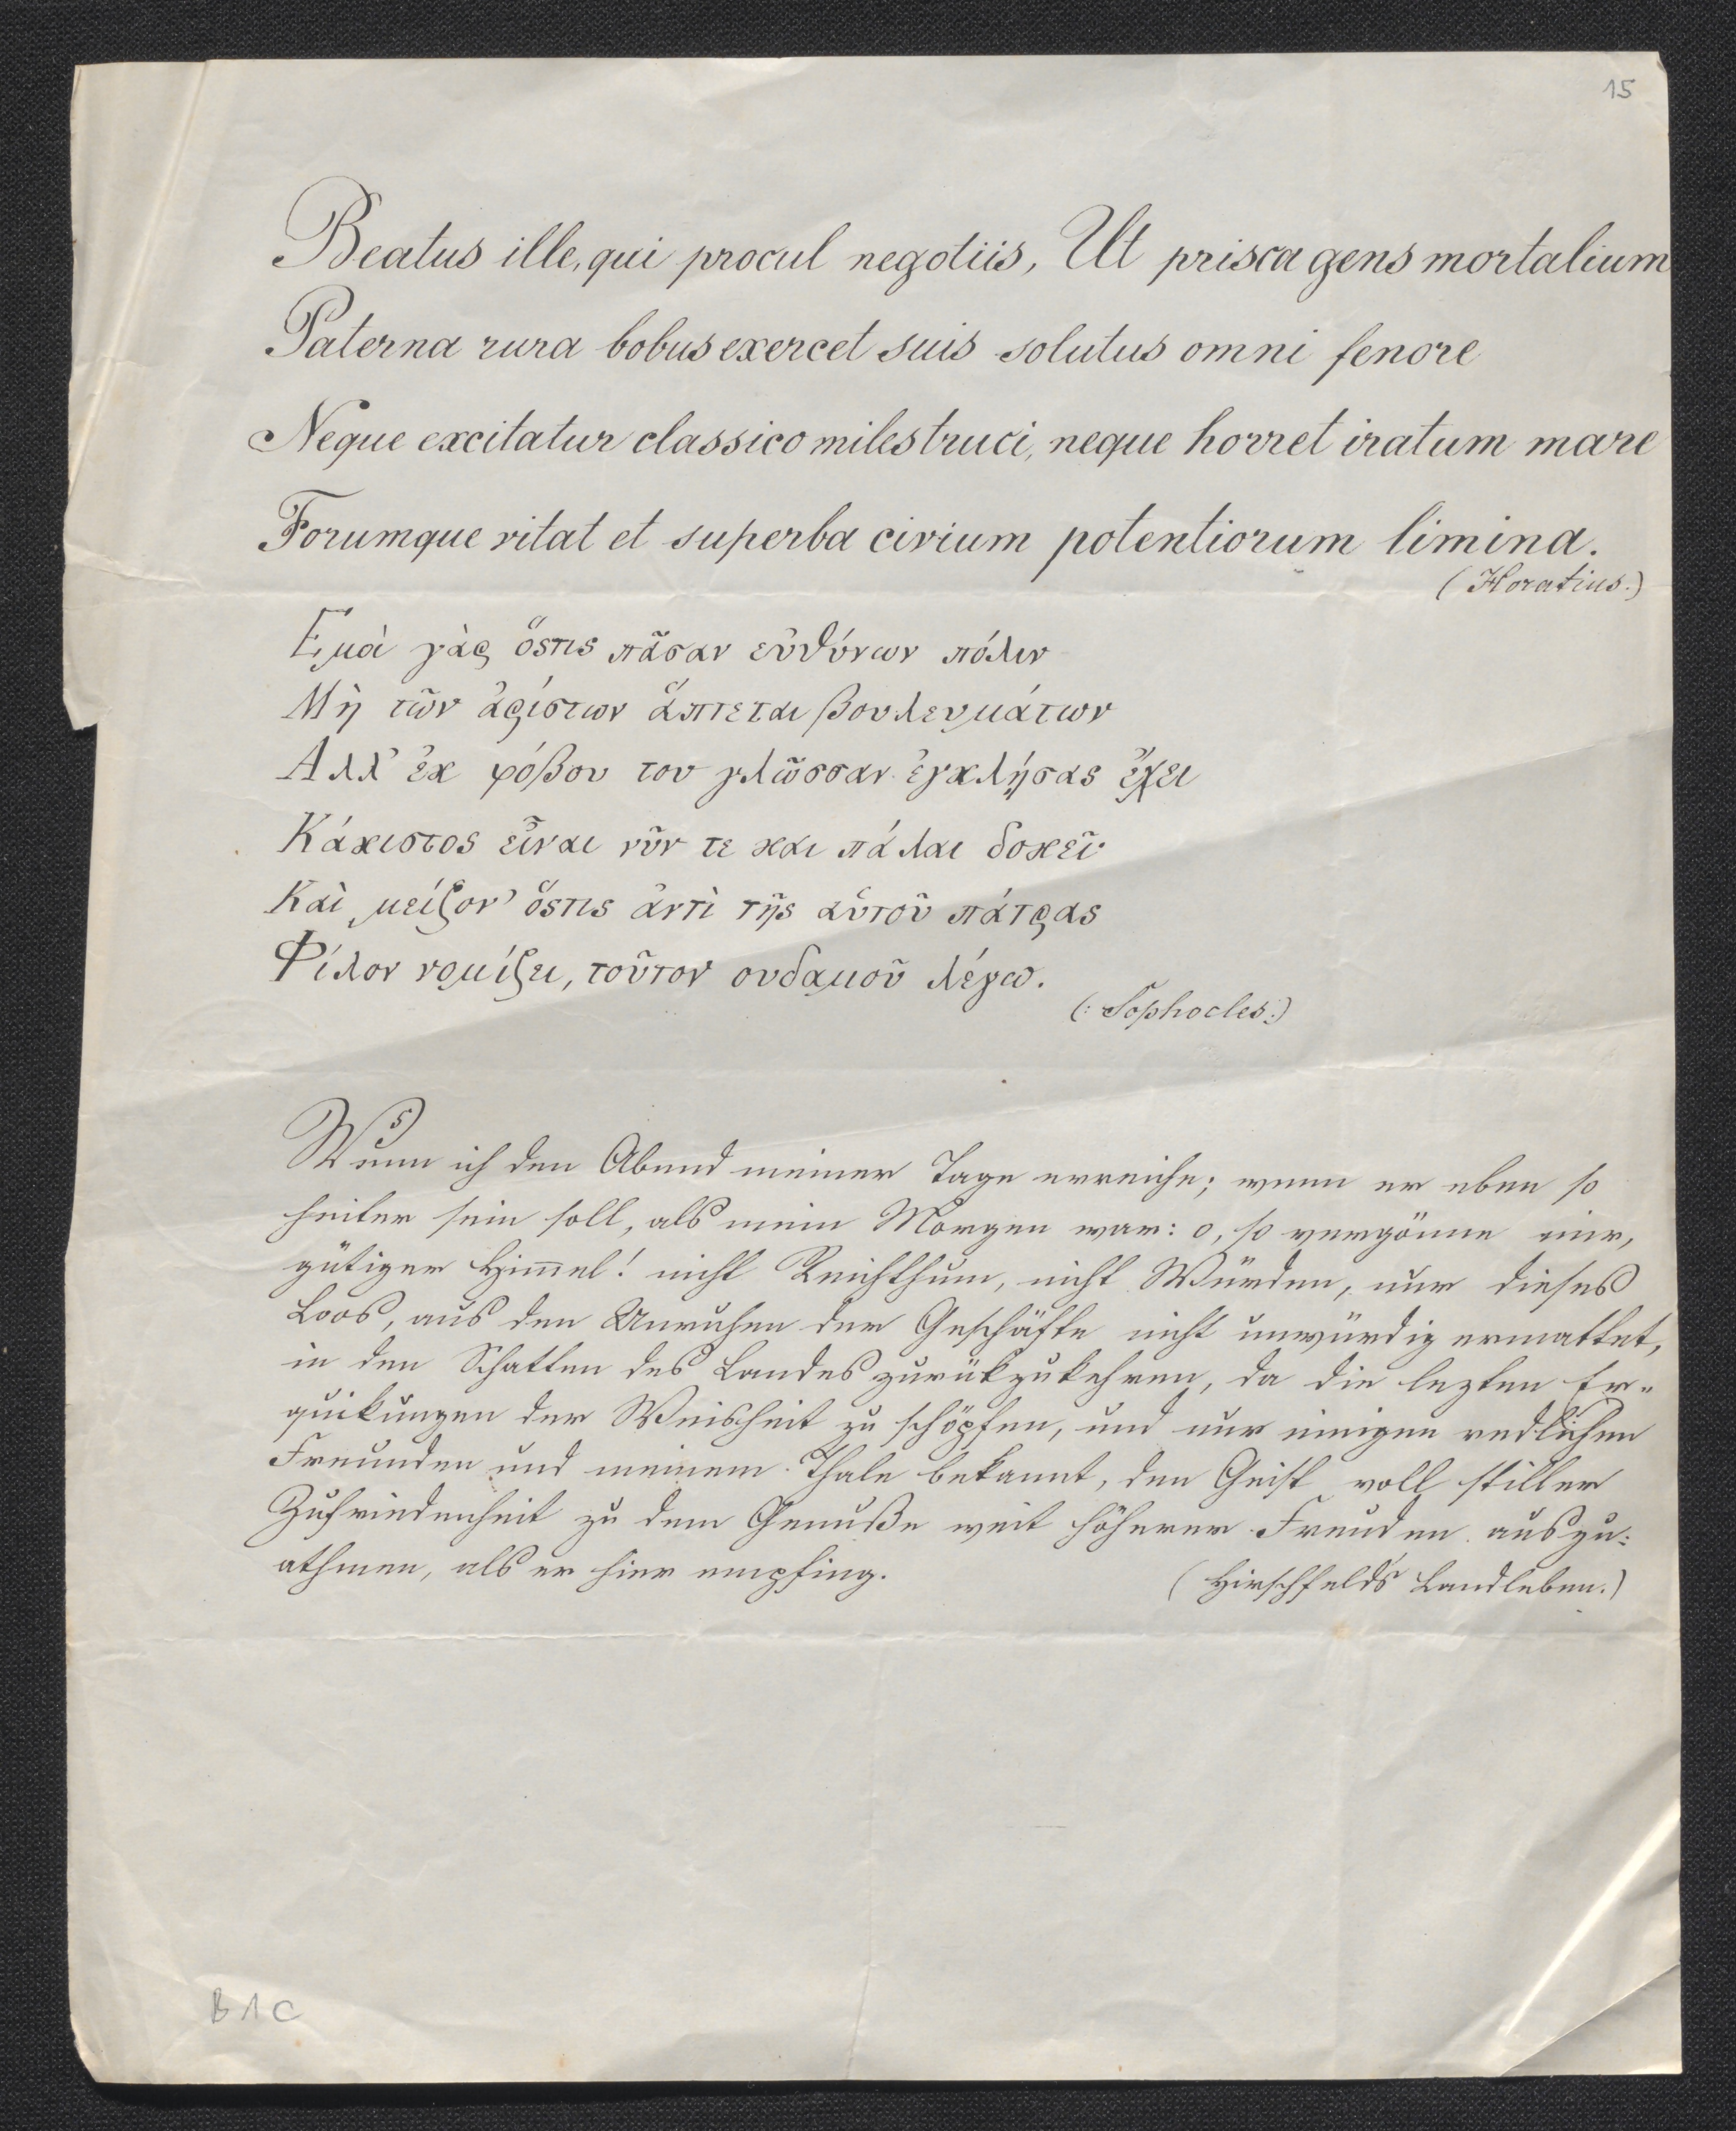 15
Beatus ille, qui procul negotiis, Ut prisca gens mortalium
Paterna rura bobus exercet suis solutus omni fenore
Neque excitatur classico miles truci, neque horret iratum mare
Forumque vitat et superba civium potentiorum limina.
(Horatius.)
Εμὰ γὰρ ὅστις πᾶσαν εὐθύνων πόλιν
Μὴ τῶν ἀρίστων ἅπτεται βουλευμάτων
Αλλ' ἐκ φόβου του γλῶσσαν ἐγκλῄσας ἔχει
Κάκιστος εἶναι νῦν τε και πάλαι δοκεῖ·
Καὶ μείζον' ὅστις ἀντὶ τῆς αὑτοῦ πάτρας
Φίλον νομίζει, τοῦτον ουδαμοῦ λέγω.
(: Sophocles :)
Wenn ich den Abend meiner Tage erreiche; wenn er eben so
heiter sein soll, als mein Morgen war: o, so vergönne mir,
gütiger Him̅el! nicht Reichthum, nicht Würden, nur dieses
Loos, aus den Unruhen der Geschäfte nicht unwürdig ermattet,
in den Schatten des Landes zurükzukehren, da die lezten Er-
quikungen der Weisheit zu schöpfen, und nur einigen redlichen
Freunden und meinem Thale bekannt, den Geist voll stiller
Zufriedenheit zu dem Genuße weit höherer Freuden auszu-
athmen, als er hier empfing.
(Hirschfelds Landleben.)
B1C